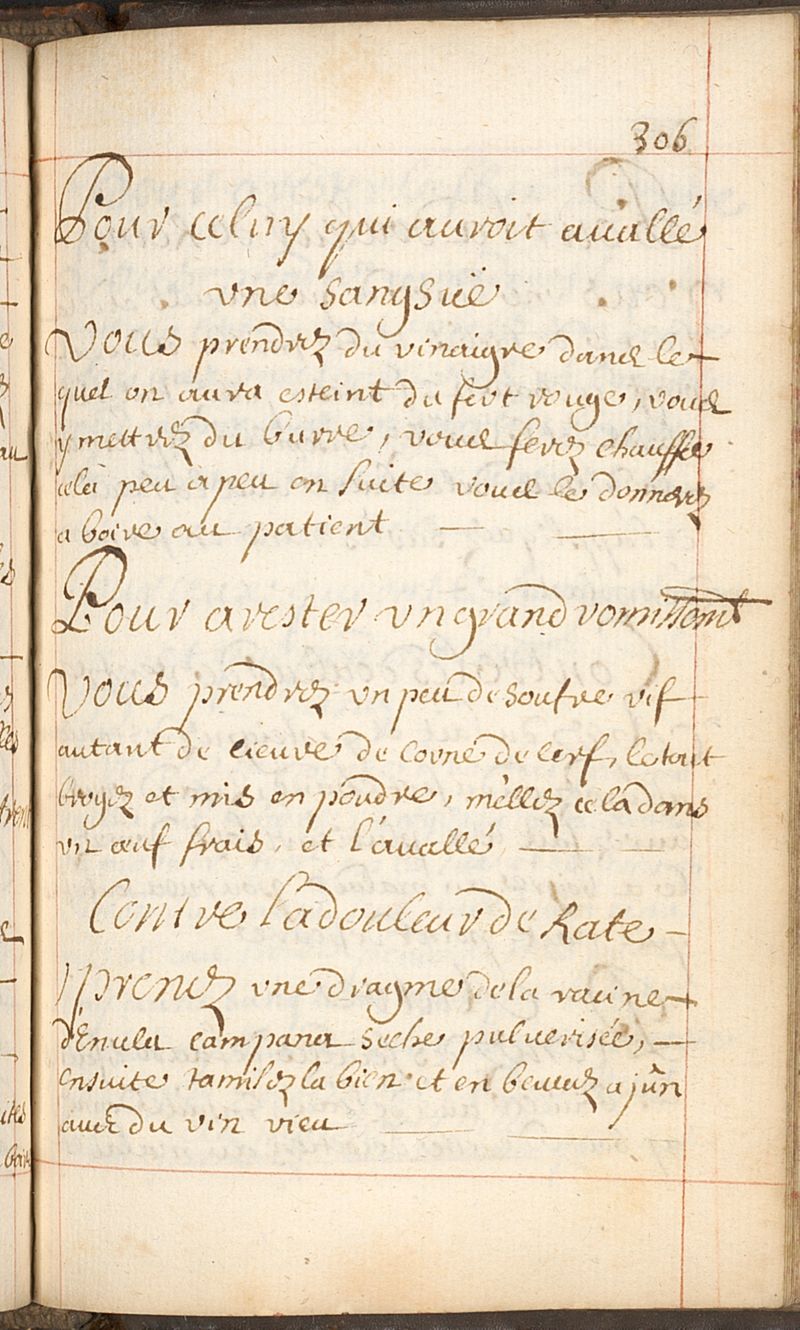 306
Pour celuy qui auroit auallé
vne sangsuë
Vous prendrez du vinaigre dans le
quel on aura esteint du fert rouge, vous
y mettrez du burre, vous ferez chauffer
cela peu a peu en suite vous le donnerez
a boire au patient
Pour arester vn grand vomissemt
Vous prendrez vn peu de soufre vif
autant de cieure de corne de cerf, le tout
broyez et mis en poudre, mellez cela dans
vn œuf frais, et l'auallé
Contre la douleur de Rate
prenez vne dragme de la racine
d'Enula campana seche puluerisée,
ensuite tamisez la bien et en beuuez a jûn
auec du vin vieu